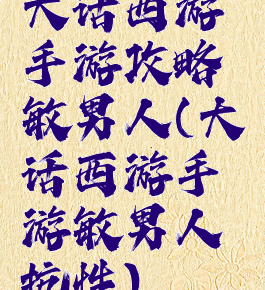 大话西游
手游攻略
敏男人(大
话西游手
游敏男人
抗性)